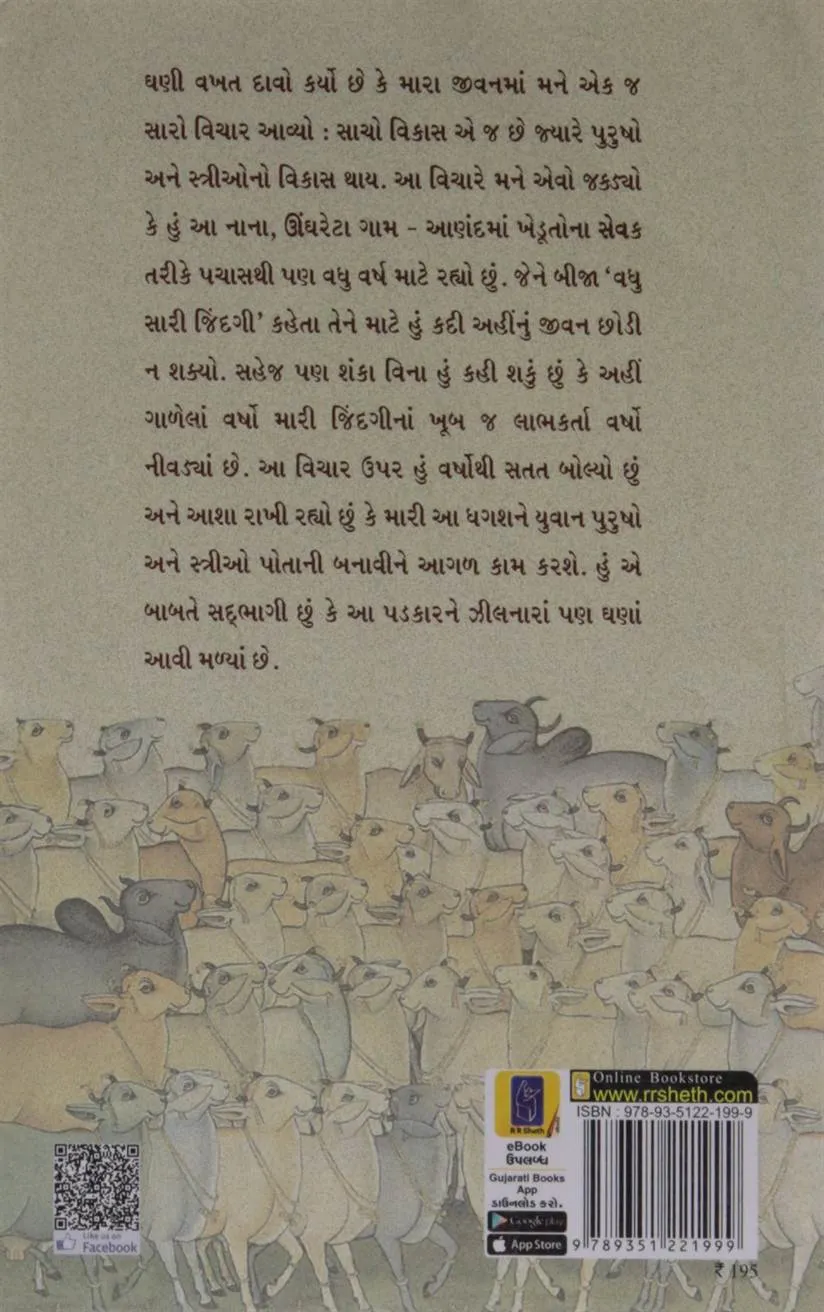 ઘણી વખત દાવો કર્યો છે કે મારા જીવનમાં મને એક જ
સારો વિચાર આવ્યો : સાચો વિકાસ એ જ છે જ્યારે પુરુષો
અને સ્ત્રીઓનો વિકાસ થાય. આ વિચારે મને એવો જકડ્યો
કે હું આ નાના, ઊંઘરેટા ગામ - આણંદમાં ખેડૂતોના સેવક
તરીકે પચાસથી પણ વધુ વર્ષ માટે રહ્યો છું. જેને બીજા ‘વધુ
સારી જિંદગી’ કહેતા તેને માટે હું કદી અહીંનું જીવન છોડી
ન શક્યો. સહેજ પણ શંકા વિના હું કહી શકું છું કે અહીં
ગાળેલાં વર્ષો મારી જિંદગીનાં ખૂબ જ લાભકર્તા વર્ષો
નીવડ્યાં છે. આ વિચાર ઉપર હું વર્ષોથી સતત બોલ્યો છું
અને આશા રાખી રહ્યો છું કે મારી આ ધગશને યુવાન પુરુષો
અને સ્ત્રીઓ પોતાની બનાવીને આગળ કામ કરશે. હું એ
બાબતે સદ્ભાગી છું કે આ પડકારને ઝીલનારાં પણ ઘણાં
આવી મળ્યાં છે.
Online Bookstore
www.rrsheth.com
ISBN : 978-93-5122-199-9
R R Sheth
eBook
ઉપલબ્ધ
Gujarati Books
App
ડાઉનલોડ કરો.
Google play
App Store
9 789351 221999
₹ 195
Like us on
Facebook